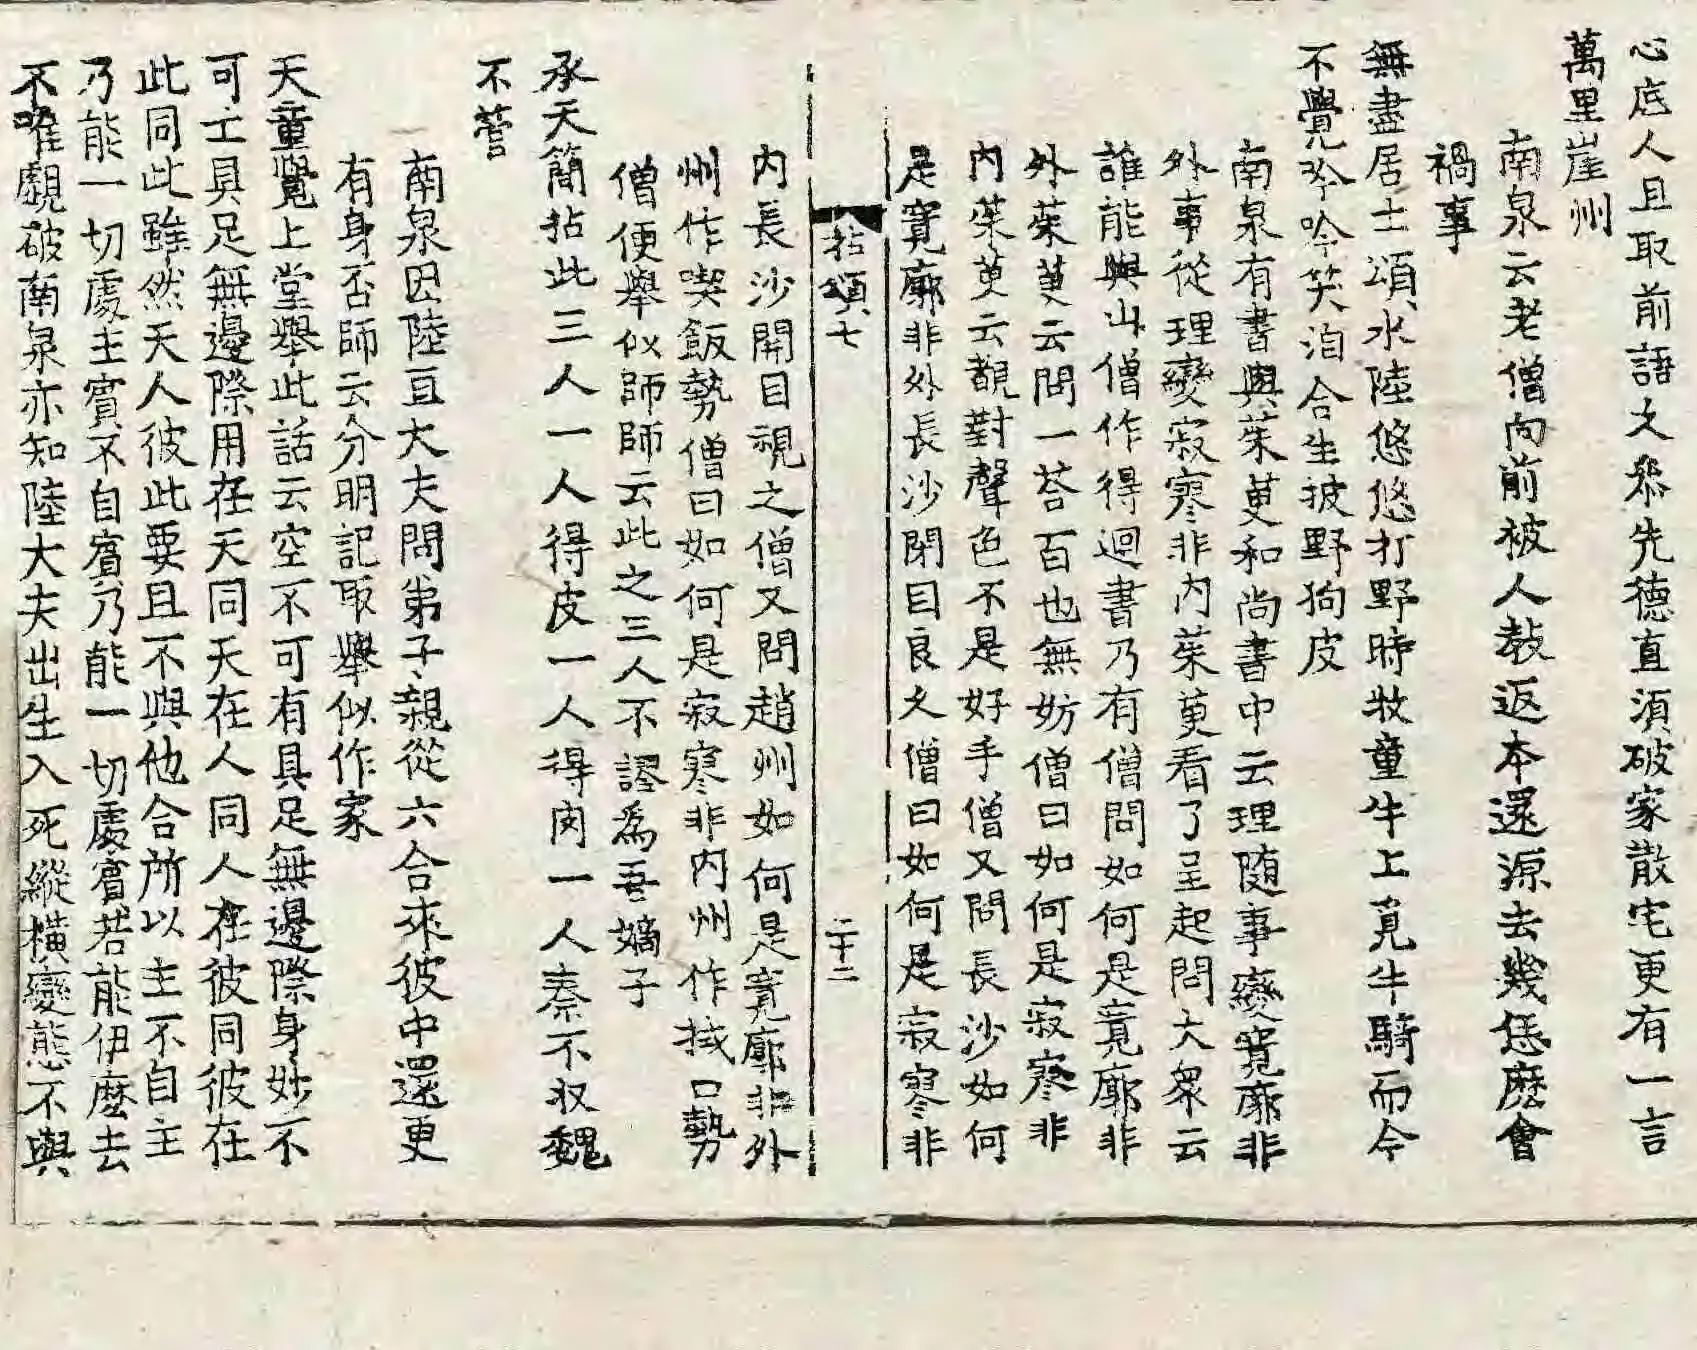 心底人且取前語文叅先德直湏破家散宅更有一言
萬里崖州
南泉云老僧向前被人教返本還源去幾恁麽會
禍事
無盡居士頌水陸悠悠打野時牧童牛上覓牛騎而今
不覺吟吟笑洎合生披野狗皮
南泉有書與茱萸和尚書中云理随事變寛廓非
外事從理變寂寥非内茱萸看了呈起問大衆云
誰能與山僧作得迴書乃有僧問如何是寛廓非
外茱萸云問一荅百也無妨僧曰如何是寂寥非
内茱萸云覩對聲色不是好手僧又問長沙如何
是寛廓非外長沙閉目良久僧曰如何是寂寥非
拈頌七
二十二
内長沙開目視之僧又問趙州如何是寛廓非外
州作喫飯勢僧曰如何是寂寥非内州作拭口勢
僧便舉似師師云此之三人不謬爲吾嫡子
承天簡拈此三人一人得皮一人得肉一人秦不収魏
不管
南泉因陸亘大夫問弟子親從六合來彼中還更
有身否師云分明記取舉似作家
天童覺上堂舉此話云空不可有具足無邊際身妙不
可工具足無邊際用在天同天在人同人在彼同彼在
此同此雖然天人彼此要且不與他合所以主不自主
乃能一切處主賓不自賓乃能一切處賓若能伊麽去
不唯覷破南泉亦知陸大夫出生入死縱橫變態不與